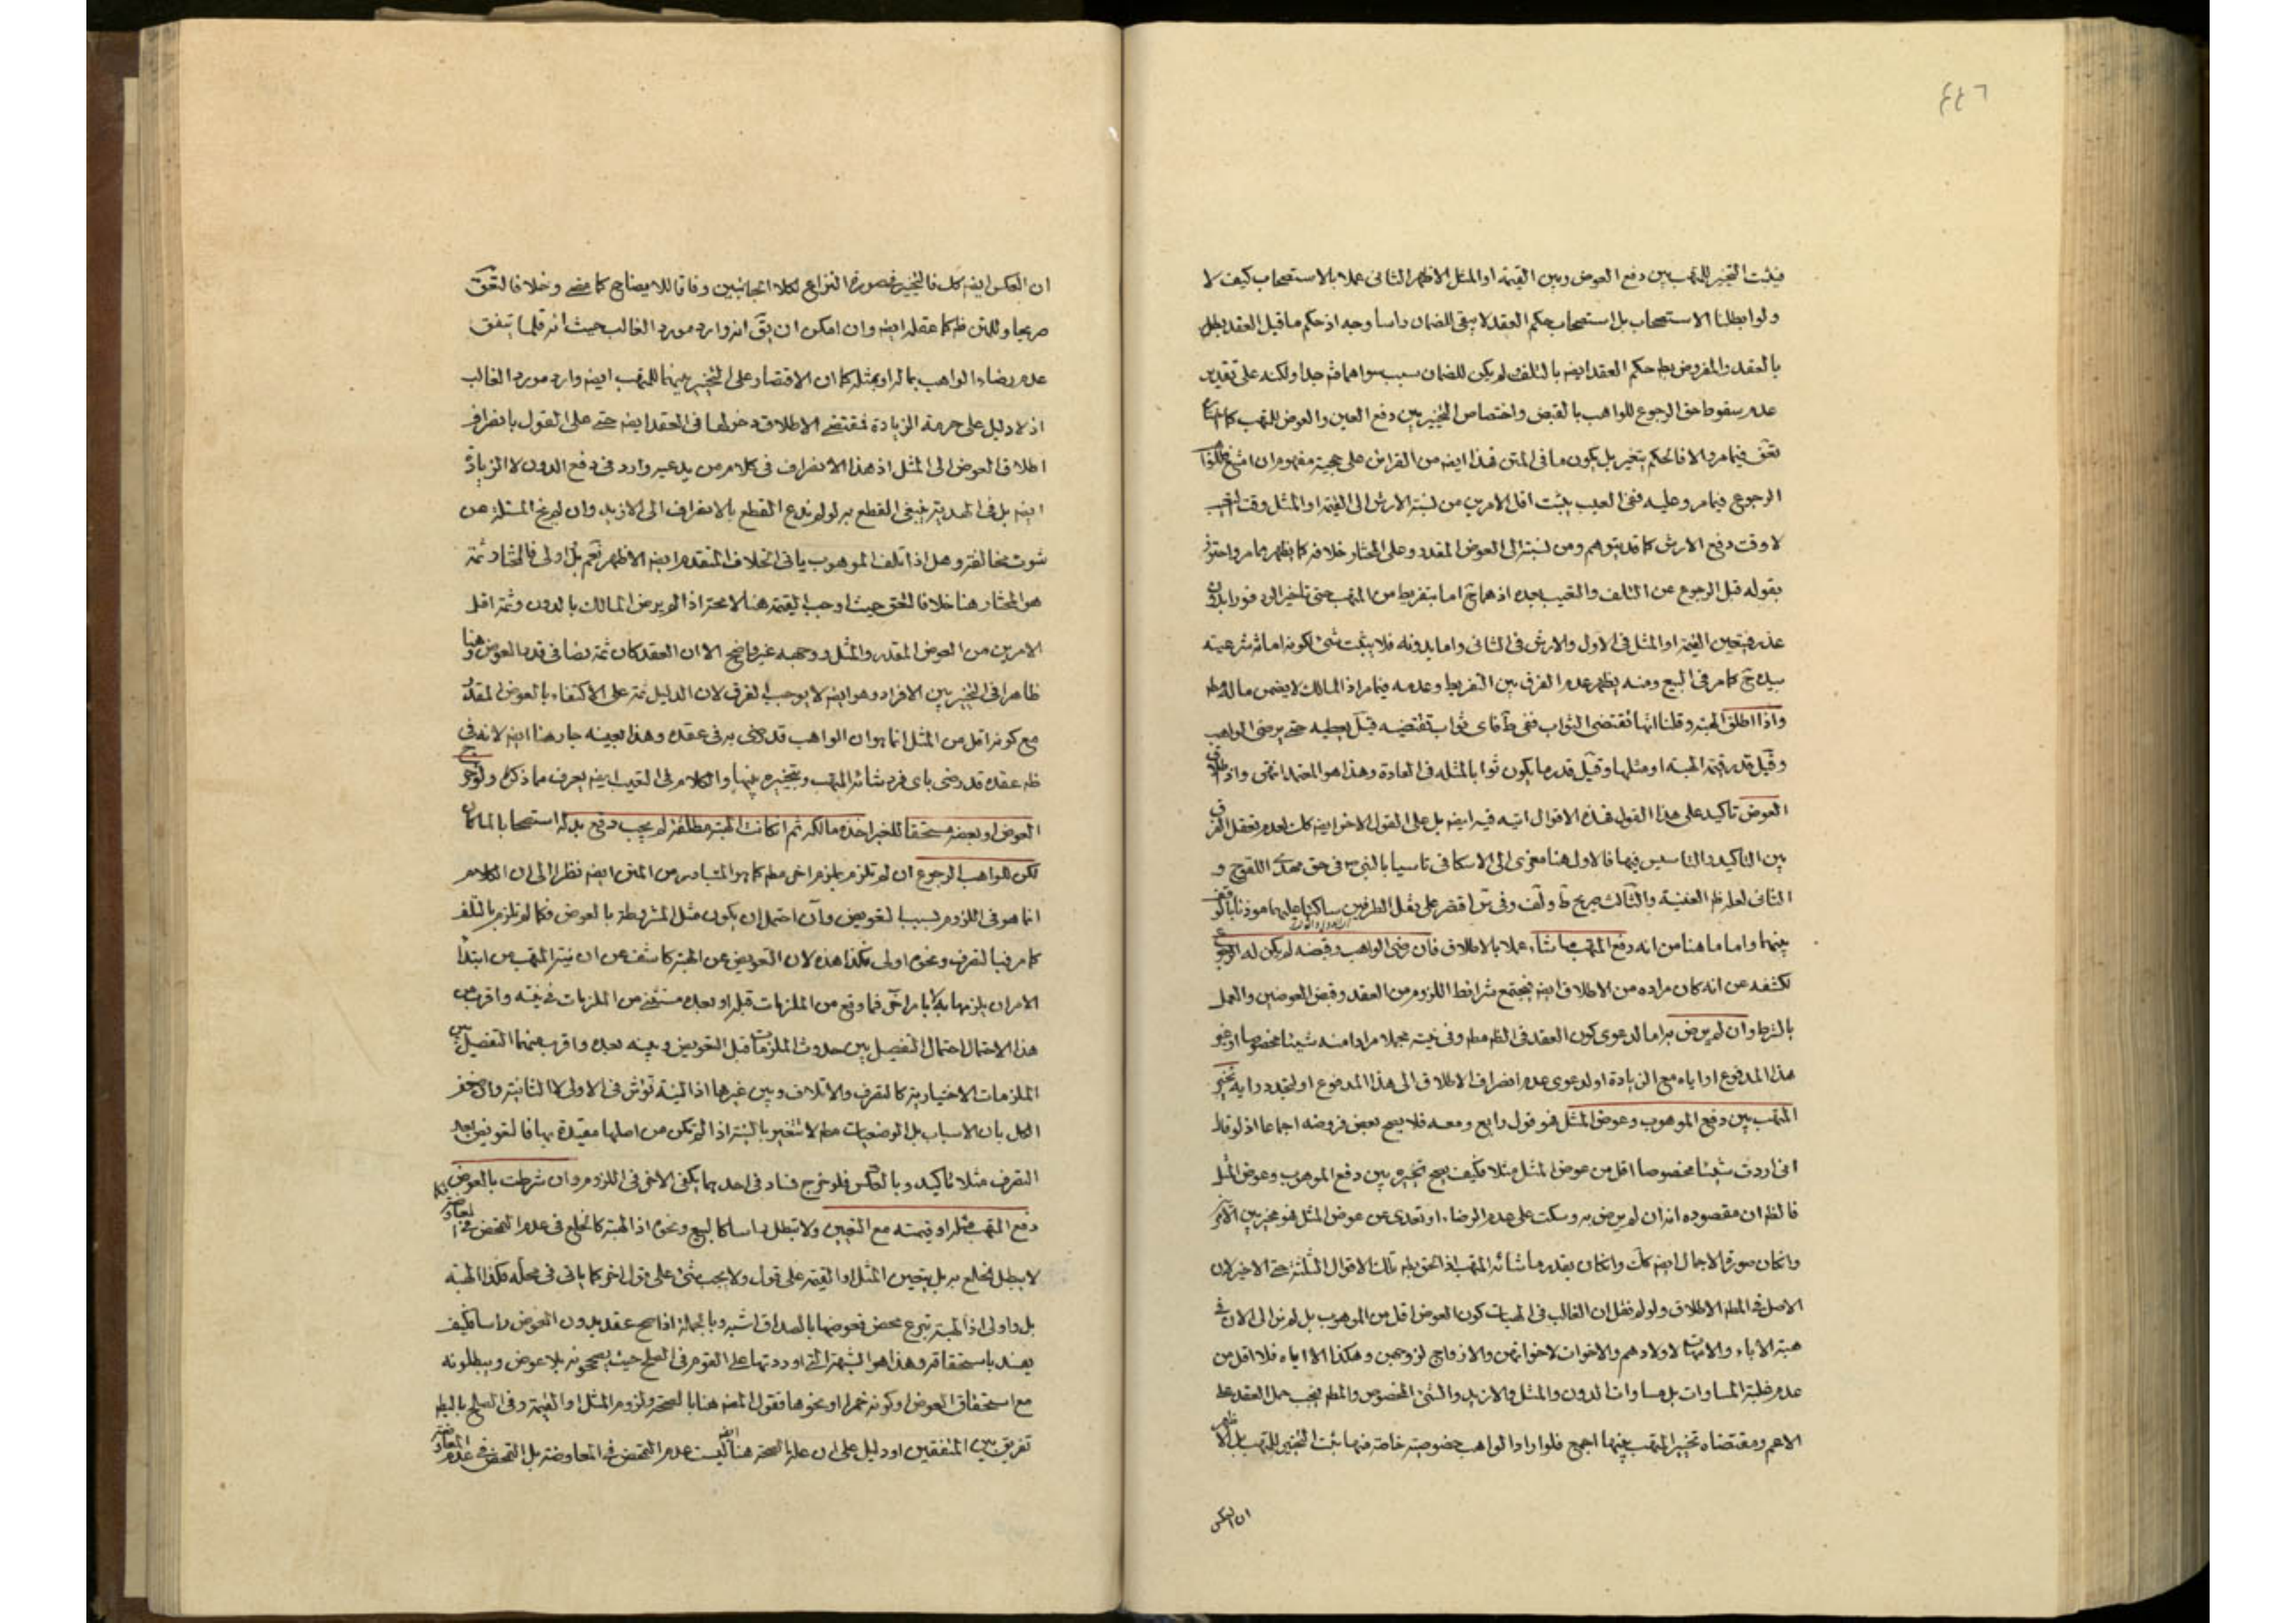 ٤٤٦
فيثبت التخير للمتهب بين دفع العوض وبين القيمة او المثل الاظهر الثاني عملا بالاستصحاب كيف لا
ولو ابطلنا الاستصحاب بل استصحاب حكم العقد لا يبقى للضمان راسا وجه اذ حكم ما قبل العقد بطل
بالعقد والمفروض بطء حكم العقد ايضه بالتلف لم يكن للضمان سبب سواهما فتم جدا ولكنه على تقدير
عدم سقوط حق الرجوع للواهب بالقبض واختصاص التخيير بين دفع العين والعوض للمتهب كما
فيما مر والا فالحكم بتخير بل يكون ما في المتن فهذا ايضه من القرائن على حجية مفهوم ان
الرجوع فيما مر وعليه ففي العيب يثبت اقل الامرين من نسبة الارش الى القيمة او المثل وقت
لا وقت دفع الارش كما قد يتوهم ومن نسبته الى العوض المقدر وعلى المختار خلافه كما يظهر مما مر واحترز
بقوله قبل الرجوع عن التلف والتعيب بعده اذ هما ح اما بتفريط من المتهب حتى تاخير الرد فورا بدون
عذر فيتعين القيمة او المثل في الاول والارش في الثاني واما بدونه فلا يثبت شئ لكونه امانة شرعية
بيده ح كما مر في البيع ومنه يظهر عدم الفرق بين التفريط وعدمه فيما مر اذ المالك لا يضمن ماله
واذا اطلق الهبة وقلنا انها تقتضى الثواب ففي ط فاى ثواب تقتضيه قيل يعطيه حتى يرضى الواهب
وقيل قدر قيمة الهبة او مثلها وقيل قدر ما يكون ثوابا لمثله في العادة وهذا هو المعتمد انتهى واذ
العوض تاكيد على هذا القول فهذه الاقوال اتية فيه ايضه بل على القول الاخر ايضه كك لعدم تعقل الفرق
بين التاكيد والتاسيس فيها فالاول هنا معزى الى الاسكافي تاسيا بالنبي ص في حق مهدى اللقوح و
الثاني لعله ظ الغنية والثالث صريح ط ولف وفي س اقتصر على نقل الطرفين ساكتا عليهما موذنا بالتوقف
بينهما واما ما هنا من انه دفع المتهب ما شاء عملا بالاطلاق فان رضى الواهب وقبضه لم يكن له الرجوع
لكشفه عن انه كان مراده من الاطلاق ايضه فيجتمع شرائط اللزوم من العقد وقبض العوضين والعمل
بالشرط وان لم يرض به اما لدعوى كون العقد في الظم مطم وفي نيته مجملا مرادا منه شيئا مخصوصا او غير
هذا المدفوع او اياه مع الزيادة او لدعوى عدم انصراف الاطلاق الى هذا المدفوع او لتجدد رايه تخير
المتهب بين دفع الموهوب وعوض المثل فهو قول رابع ومعه فلا يصح بعض فروضه اجماعا اذ لو قال
اني اردت شيئا مخصوصا اقل من عوض المثل مثلا فكيف يصح تخيره بين دفع الموهوب وعوض المثل
فالظم ان مقصوده انه ان لم يرض به وسكت على عدم الرضاء او تعدى عن عوض المثل فهو مخير بين الامرين
وان كان صورة الاجمال ايضه كك وان كان بقدر ما شائه المتهب اذ الحق بطم تلك الاقوال الثلثة حتى الاخير لان
الاصل في المطم الاطلاق ولو لم نقل ان الغالب في الهبات كون العوض اقل من الموهوب بل لم نر الى الان في
هبة الاباء والامهات لاولادهم والاخوات لاخوانهن والازواج لزوجهن وهكذا الا اياه فلا اقل من
عدم غلبة المساوات بل مساوات الدون والمثل والازيد والشئ المخصوص والمطم فيجب حمل العقد على
الاعم ومقتضاه تخيير المتهب بينها اجمع فلو اراد الواهب خصوصية خاصة منها يثبت التخيير للمتهب بل الاظهر
ان العكس
ان العكس ايضه كك فالتخير في صورة النزاع لكلا الجانبين وفاقا للايضاح كما مضى وخلافا
صريحا وللمتن ظ كما عقله ايضه وان امكن ان يق انه وارد مورد الغالب حيث انه قلما يتفق
عدم رضاء الواهب بماله او بمثله كما ان الاقتصار على التخيير بينهما للمتهب ايضه وارد مورد الغالب
اذ لا دليل على حرمة الزيادة فمقتضى الاطلاق دخولها في العقد ايضه حتى على القول بانصراف
اطلاق العوض الى المثل اذ هذا الانصراف في كلام من يدعيه وارد في دفع الدون لا الزيادة
ايضه بل في الهدية ينبغي القطع به لو لم ندع القطع بالانصراف الى الازيد وان لم يخ المسئلة عن
شوب مخالفة وهل اذا تلف الموهوب ياتي الخلاف المتقدم ايضه الاظهر نعم بل اولى فالمختار ثمة
هو المختار هنا خلافا حيث اوجب القيمة هنا لا محة اذا لم يرض المالك بالدون وثمة اقل
الامرين من العوض المقدر والمثل ووجهه غير واضح الا ان العقد كان ثمة نصا في قدر العوض وهنا
ظاهرا في التخيير بين الافراد وهو ايضه لا يوجب الفرق لان الدليل ثمة على الاكتفاء بالعوض المقدر
مع كونه اقل من المثل انما هو ان الواهب قد رضى به في عقده وهذا بعينه جار هنا ايضه لانه في
ظم عقده قد رضى باى فرد شائه المتهب وبتخيره بينها والكلام في التعيب ايضه يعرف مما ذكر ولو خرج
العوض او بعضه مستحقا للغير اخذه مالكه ثم ان كانت الهبة مطلقة لم يجب دفع بدله استصحابا لما كان
لكن للواهب الرجوع ان لم تلزم بلزم اخر مطم كما هو المتبادر من المتن ايضه نظرا الى ان الكلام
انما هو في اللزوم بسبب التعويض وان احتمل ان يكون مثل المشروطة بالعوض فكما لم تلزم بالتلف
كما مر فبالتصرف ونحوه اولى فكذا هذه لان التعويض عن الهبة كاشف عن ان نية المتهب من ابتداء
الامر ان يلزمها به لا بامر اخر فما وقع من الملزمات قبله او بعده مستثنى من الملزمات في نيته واقرب من
هذا الاحتمال احتمال التفصيل بين حدوث الملزمات قبل التعويض وبينه بعده واقرب منهما التفصيل بين
الملزمات الاختيارية كالتصرف والاتلاف وبين غيرها اذ النية تؤثر في الاولى لا الثانية
الكل بان الاسباب بل الوضعيات مطم لا تتغير بالنية اذا لم تكن من اصلها مقيدة بها فالتعويض بعد
التصرف مثلا تاكيد وبالعكس فلو خرج فساد في احدهما يكفي الاخر في اللزوم وان شرطت بالعوض
دفع المتهب مثله او قيمته مع التعيين ولا تبطل راسا كالبيع ونحوه اذ الهبة كالخلع في عدم التمحض في المعاوضة
لا يبطل الخلع به بل يتعين المثل او القيمة على قول ولا يجب شئ على قول اخر كما ياتي في محله فكذا الهبة
بل واولى اذ الهبة تبرع محض فعوضها بالصداق اشبه وبالجملة اذا صح عقد بدون العوض راسا فكيف
يفسد باستحقاقه وهذا هو الشبهة التي اوردتها على القوم في الصلح حيث يصححونه بلا عوض ويبطلونه
مع استحقاق العوض او كونه خمرا او نحوها فقول المصه هنا بالصحة ولزوم المثل او القيمة وفي الصلح بالبطم
تفريق بين المتفقين او دليل على ان علة الصحة هنا ليست عدم التمحض في المعاوضة بل التمحض في عدم المعاوضة